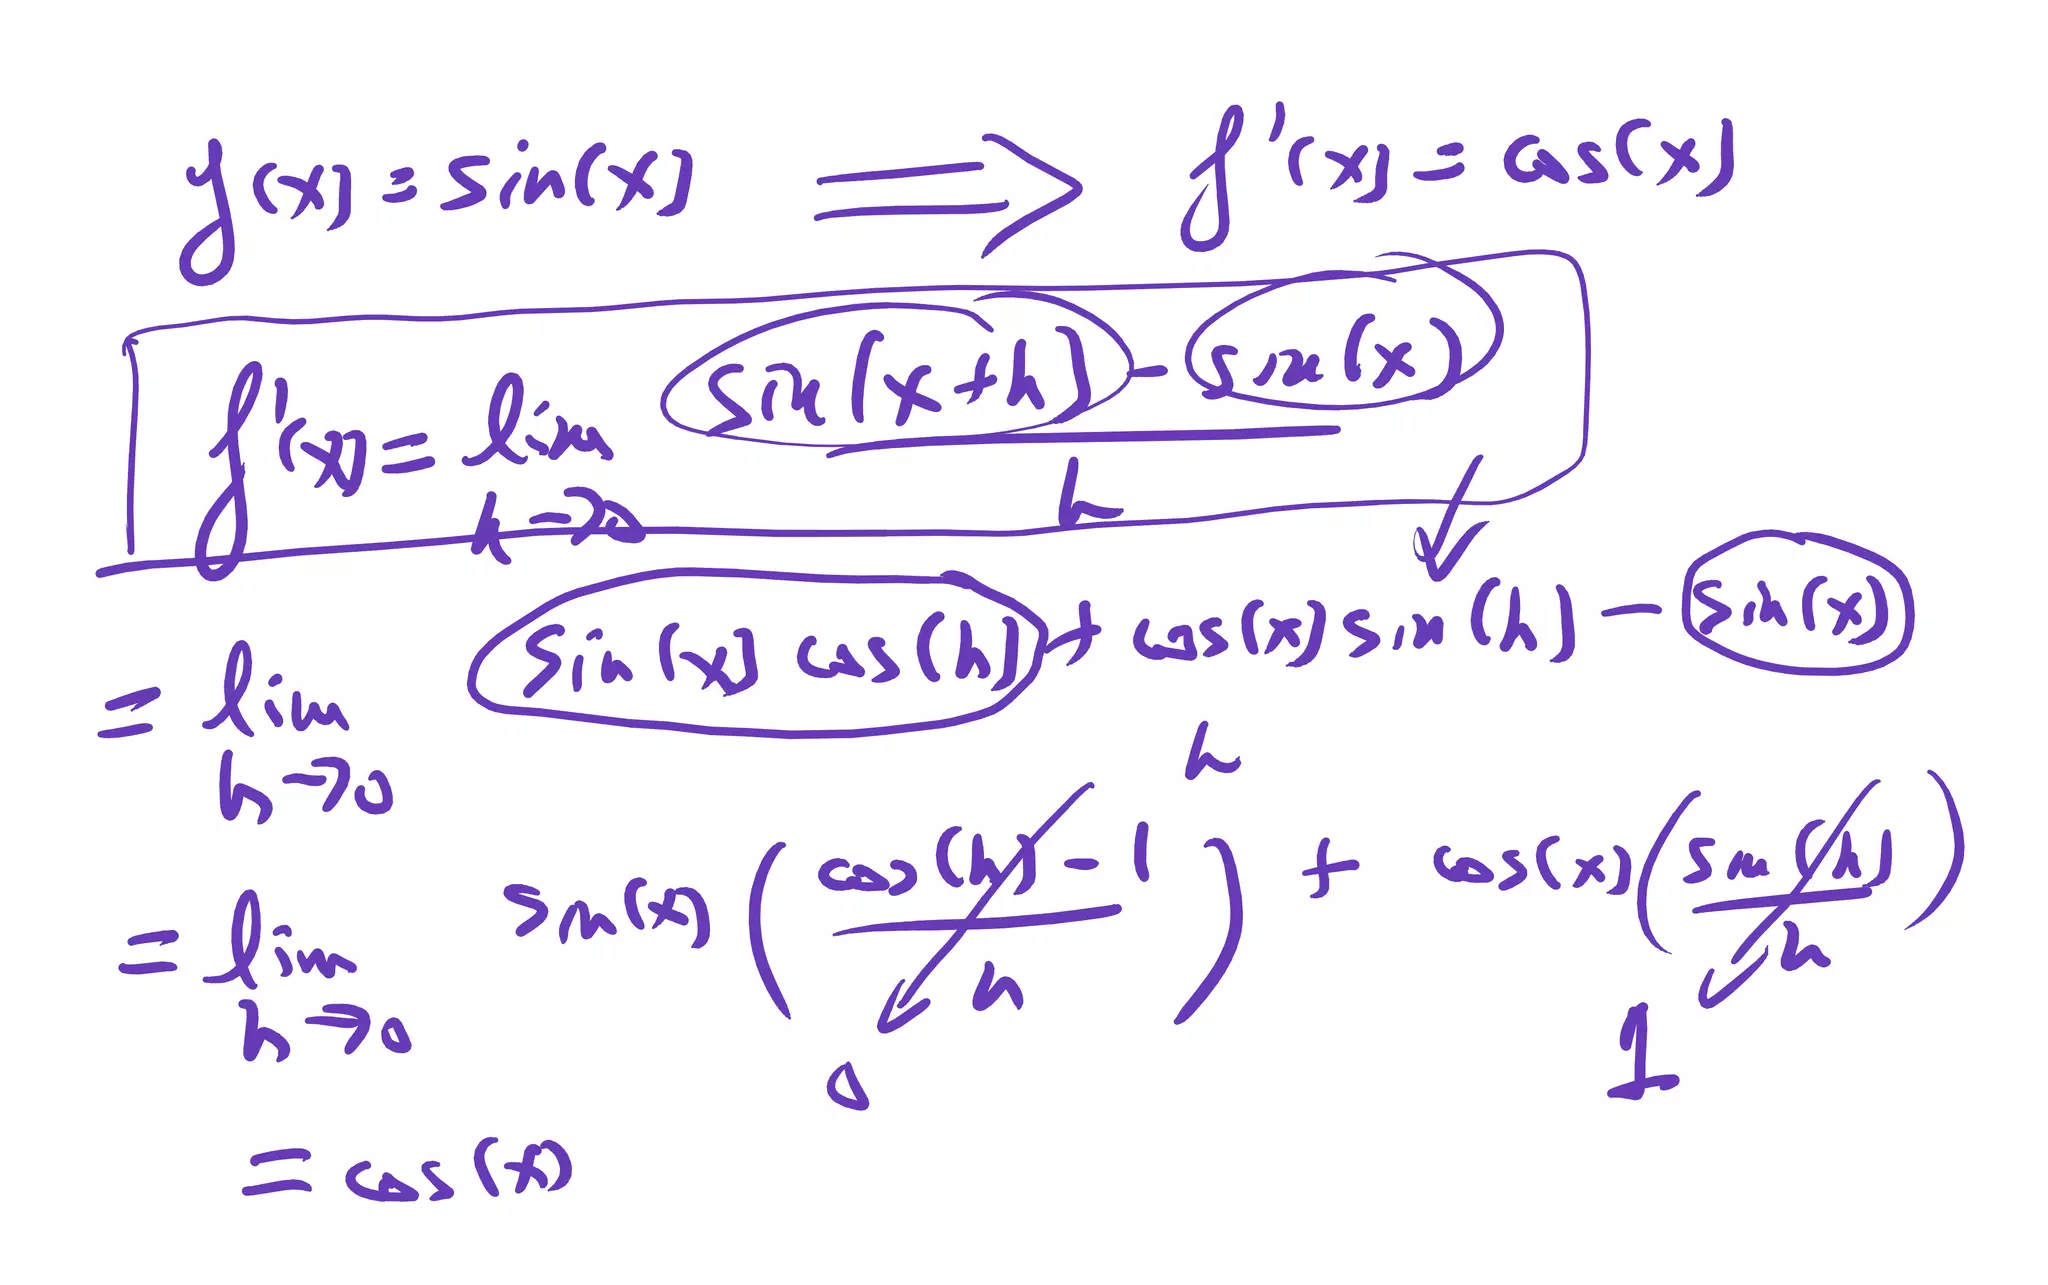 f(x) = sin(x) ⟹ f'(x) = cos(x)
f'(x) = lim h→0 (sin(x+h) - sin(x)) / h
= lim h→0 (sin(x) cos(h) + cos(x) sin(h) - sin(x)) / h
= lim h→0 sin(x) ( (cos(h) - 1) / h ) + cos(x) ( sin(h) / h )
0 1
= cos(x)